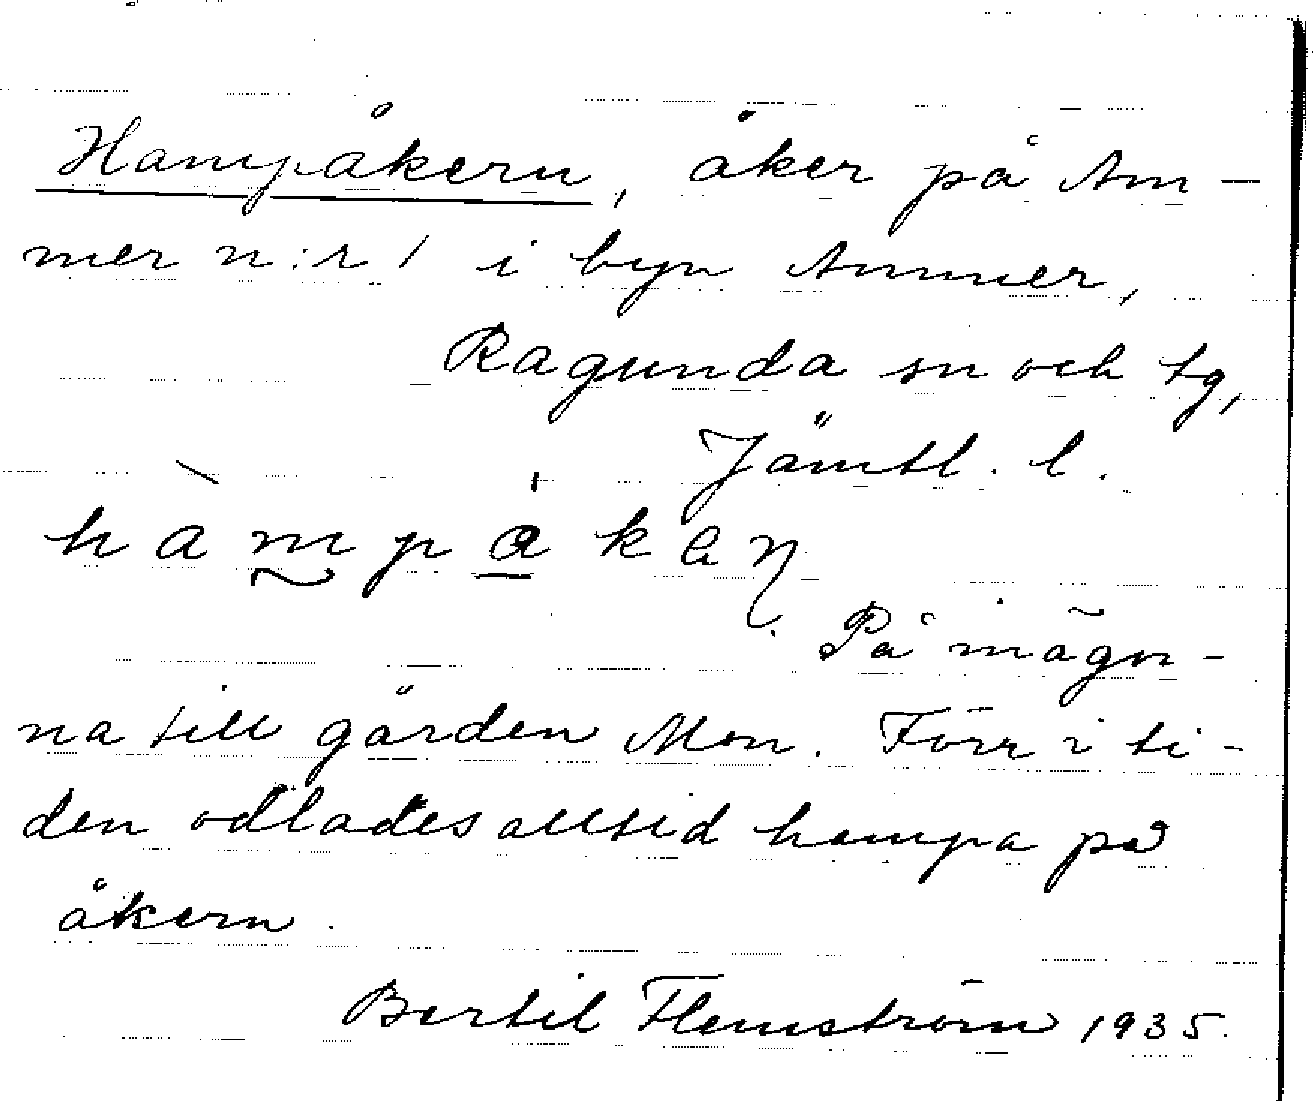 Hampåkern, åker på Am-
mer n:r 1 i byn Ammer,
Ragunda sn och tg,
Jämtl. l.
hàmpåkaɳ
På mägor-
na till gården Mon. Förr i ti-
den odlades alltid hampa på
åkern.
Bertil Flemström 1935.